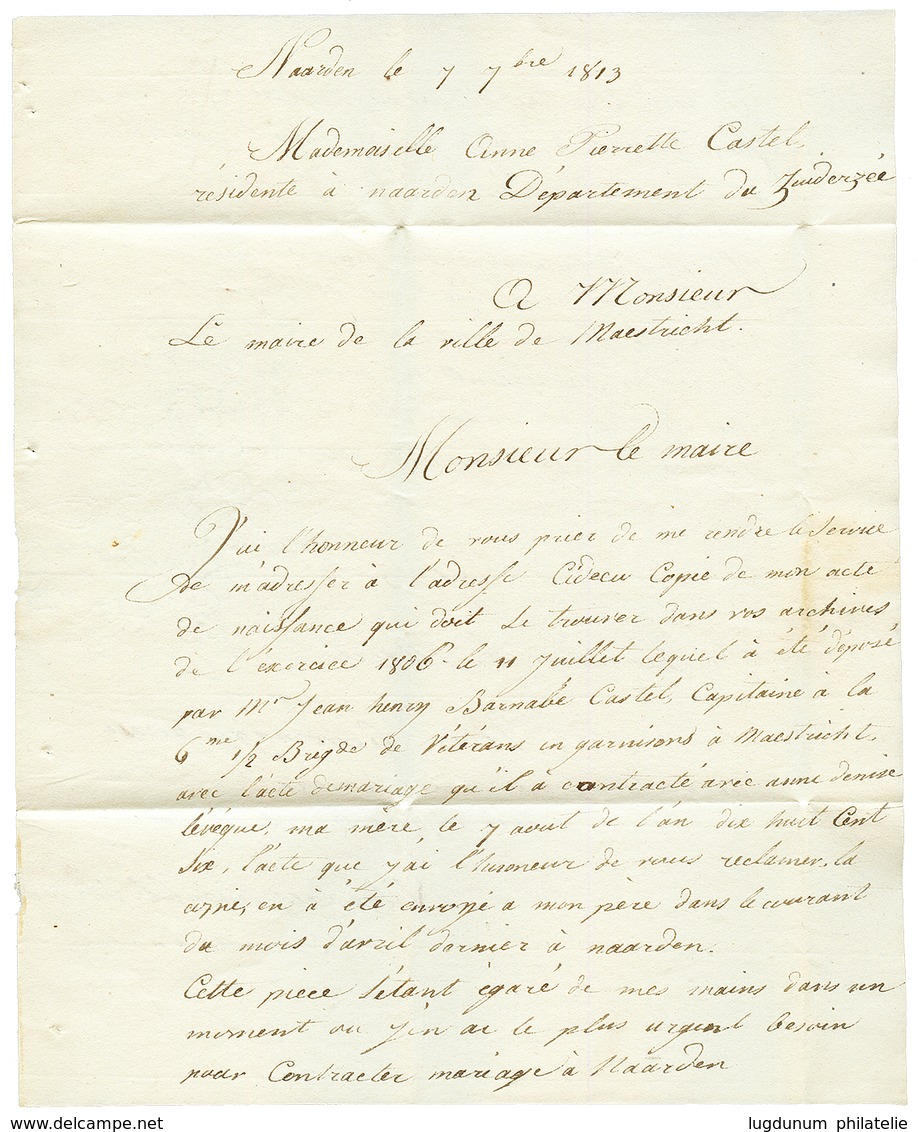 Naarden le 7 7bre 1813
Mademoiselle Anne Pierrette Castel,
résidente à naarden Département du Zuiderzée
A Monsieur
Le maire de la ville de Maestricht.
Monsieur le maire
J'ai l'honneur de vous prier de me rendre le Service
de m'adresser à l'adresse Cidecu Copie de mon acte
de naissance qui doit Se trouver dans vos archives
de l'éxercice 1806. le 11 Juillet lequel à été déposé
par Mr Jean henry Barnabé Castel, Capitaine à la
6me 1/2 Brigde de Vétérans en garnisons à Maestricht.
avec l'acte demariage qu'il à contracté avec anne denise
lévéque, ma mère, le 7 aout de l'an dix huit Cent
Six, l'acte que j'ai l'honneur de vous reclamer, la
copie, en à été envoyé a mon père dans le courant
du mois d'avril dernier à naarden.
Cette piece S'étant égaré de mes mains dans un
moment ou j'en ai le plus urgent besoin
pour Contracter mariage à Naarden
lugdunum philatelie